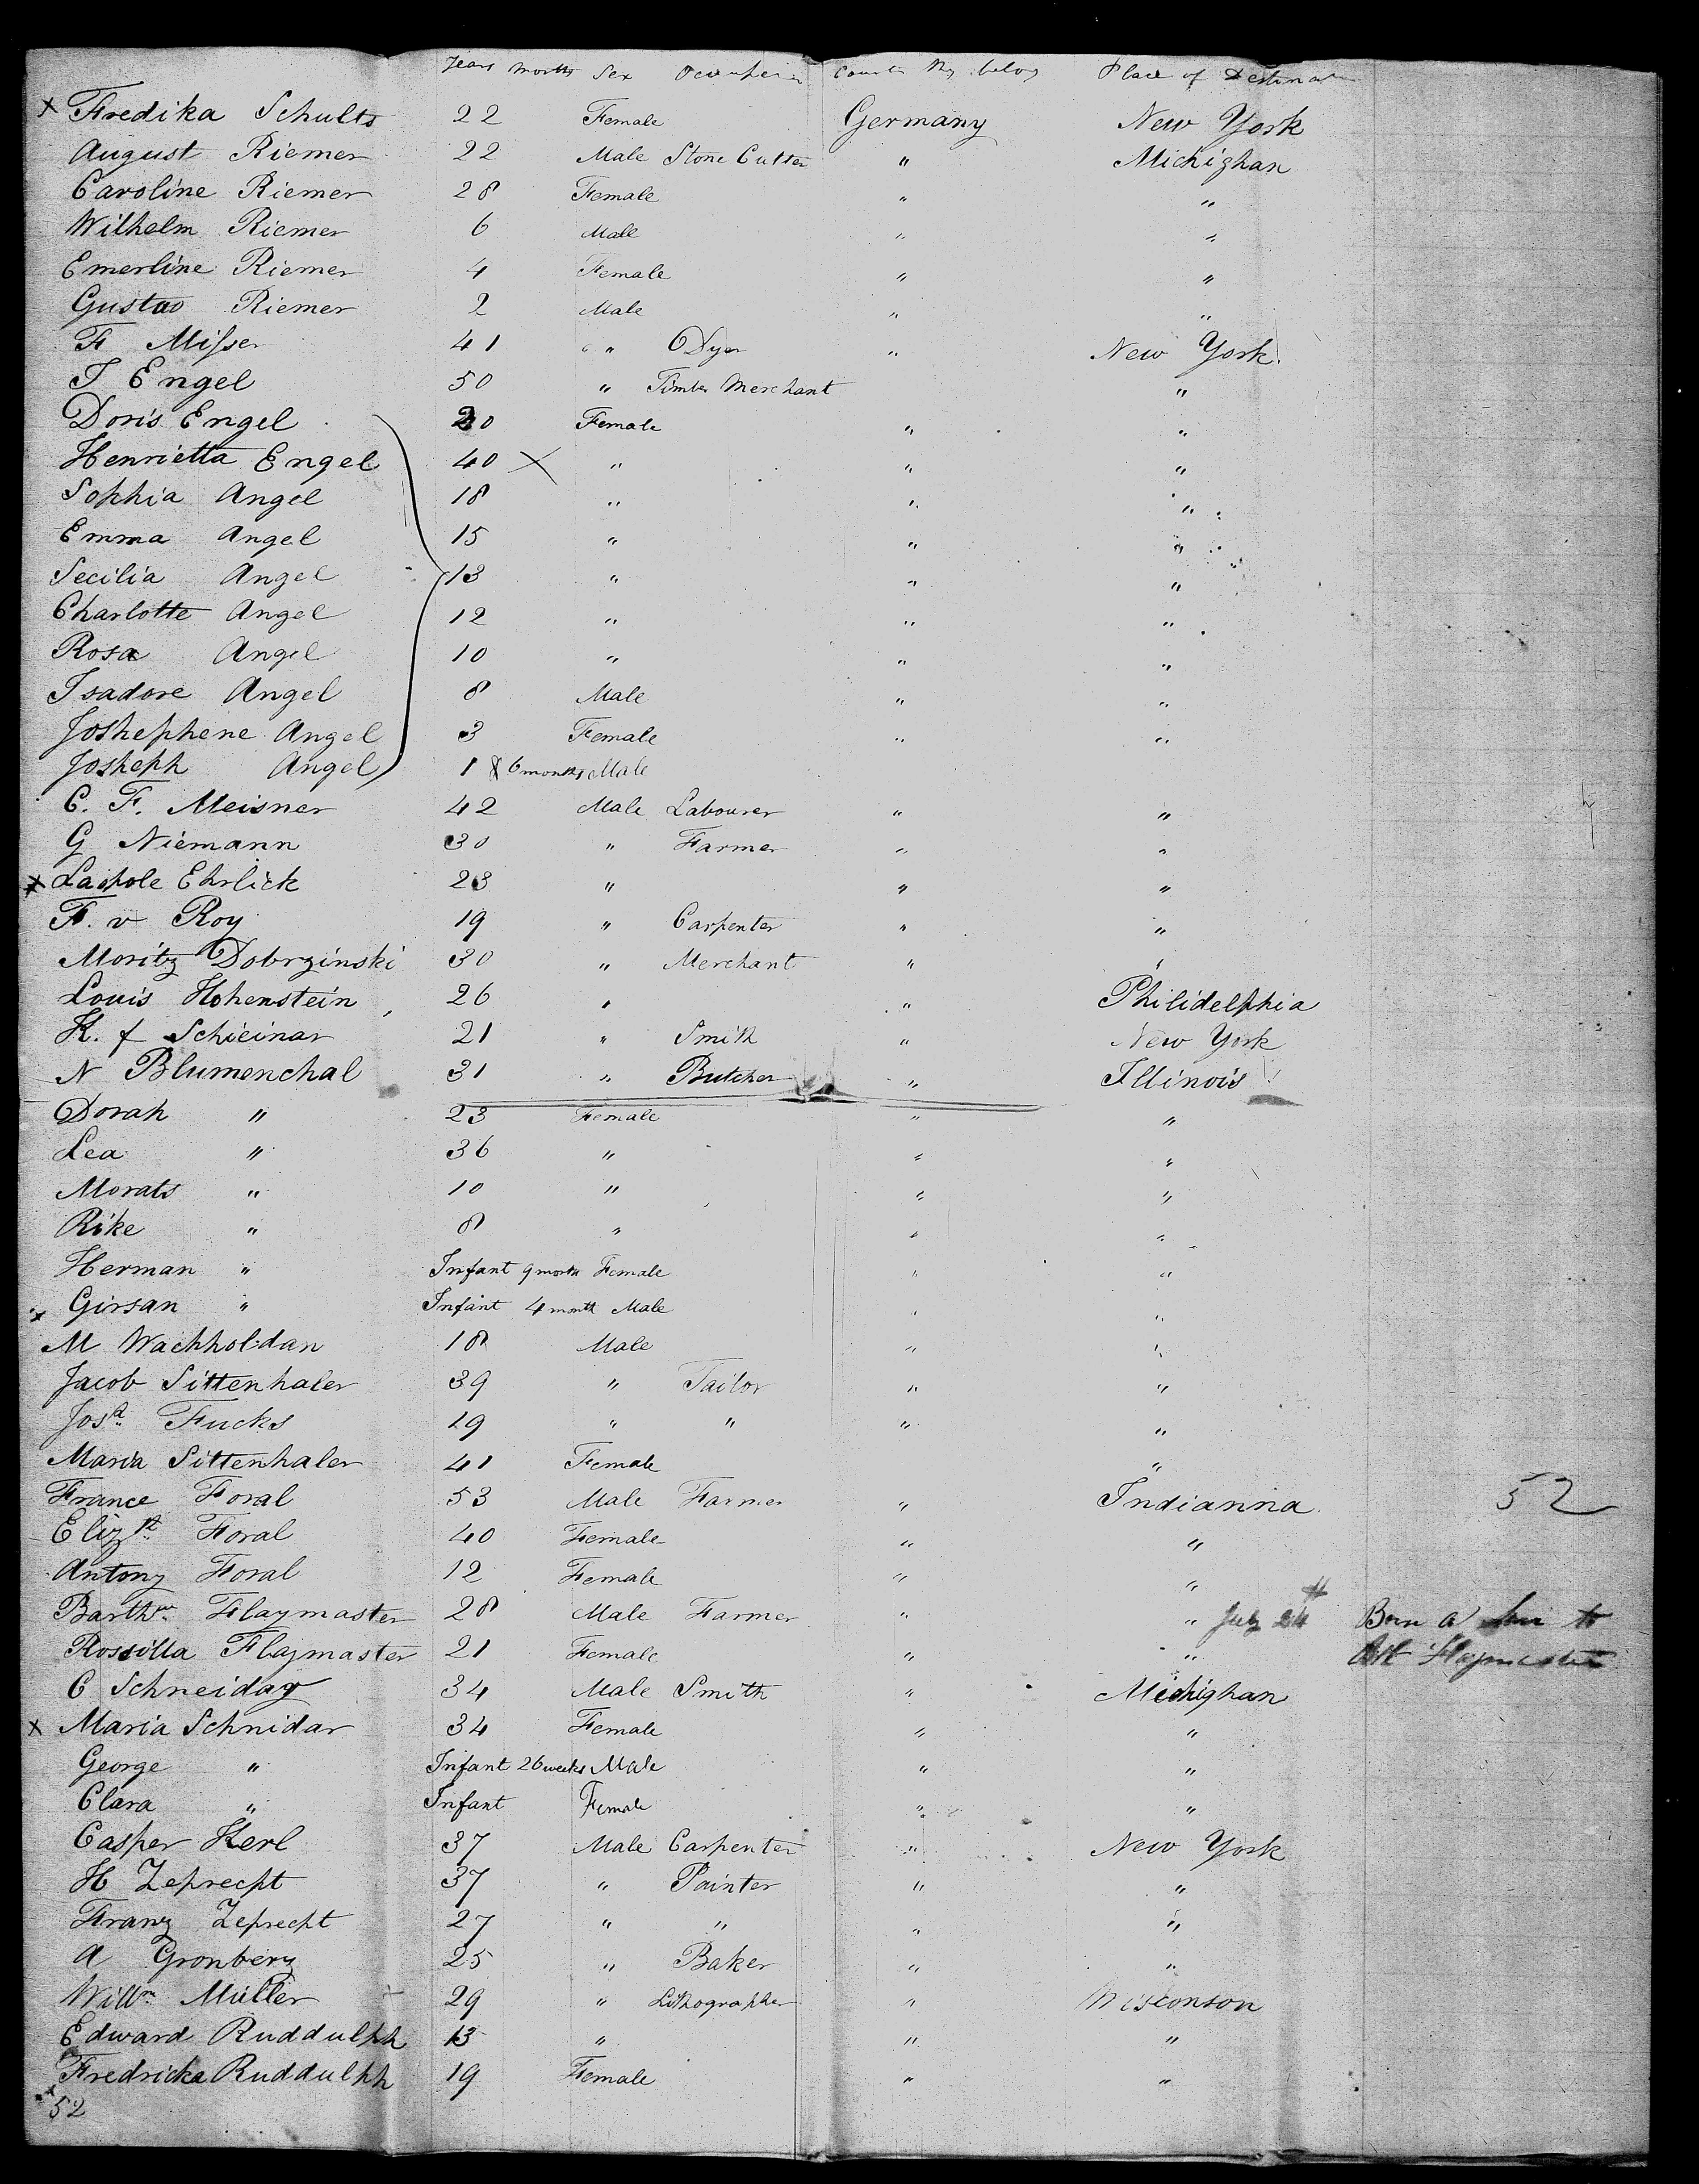 Years Months Sex Occupation Country they belong Place of Destination
x Fredika Schults 22 Female Germany New York
August Riemer 22 Male Stone Cutter " Michighan
Caroline Riemer 28 Female " "
Wilhelm Riemer 6 Male " "
Emerline Riemer 4 Female " "
Gustav Riemer 2 Male " "
F Misser 41 " Dyer " New York
T Engel 50 " Timber Merchant "
Doris Engel 20 Female " "
Henrietta Engel 40 x " " "
Sophia Angel 18 " " "
Emma Angel 15 " " "
Secilia Angel 13 " " "
Charlotte Angel 12 " " "
Rosa Angel 10 " " "
Isadore Angel 8 Male " "
Joshephene Angel 3 Female " "
Josheph Angel 1 & 6 months Male
C. F. Meisner 42 Male Labourer " "
G Niemann 30 " Farmer " "
x Lashole Ehrlick 23 " " "
F. v Roy 19 " Carpenter " "
Moritz Dobrzinski 30 " Merchant " "
Louis Hohenstein 26 " " Philidelphia
K. f Schieinar 21 " Smith " New York
N Blumenchal 31 " Butcher " Illinois
Dorah " 23 Female " "
Lea " 36 " " "
Morats " 10 " " "
Rike " 8 " " "
Herman " Infant 9 month Female " "
x Girsan " Infant 4 month Male " "
M Wachholdan 18 Male " "
Jacob Sittenhaler 39 " Tailor " "
Josh Fucks 19 " " " "
Maria Sittenhaler 41 Female "
France Foral 53 Male Farmer " Indianna 52
Elizth Foral 40 Female " "
Antony Foral 12 Female " "
Barthw Flaymaster 28 Male Farmer " " July 24th Born a son to
Rossilla Flaymaster 21 Female " " Flaymaster
C Schneidar 34 Male Smith " Michighan
x Maria Schnidar 34 Female " "
George " Infant 26 weeks Male " "
Clara " Infant Female " "
Casper Kerl 37 Male Carpenter " New York
H Zeprecpt 37 " Painter " "
Franz Zeprecpt 27 " " " "
A Gronberg 25 " Baker " "
Willm Müller 29 " Lithographer " Wisconson
Edward Ruddulph 13 " " "
Fredricka Ruddulph 19 Female " "
52